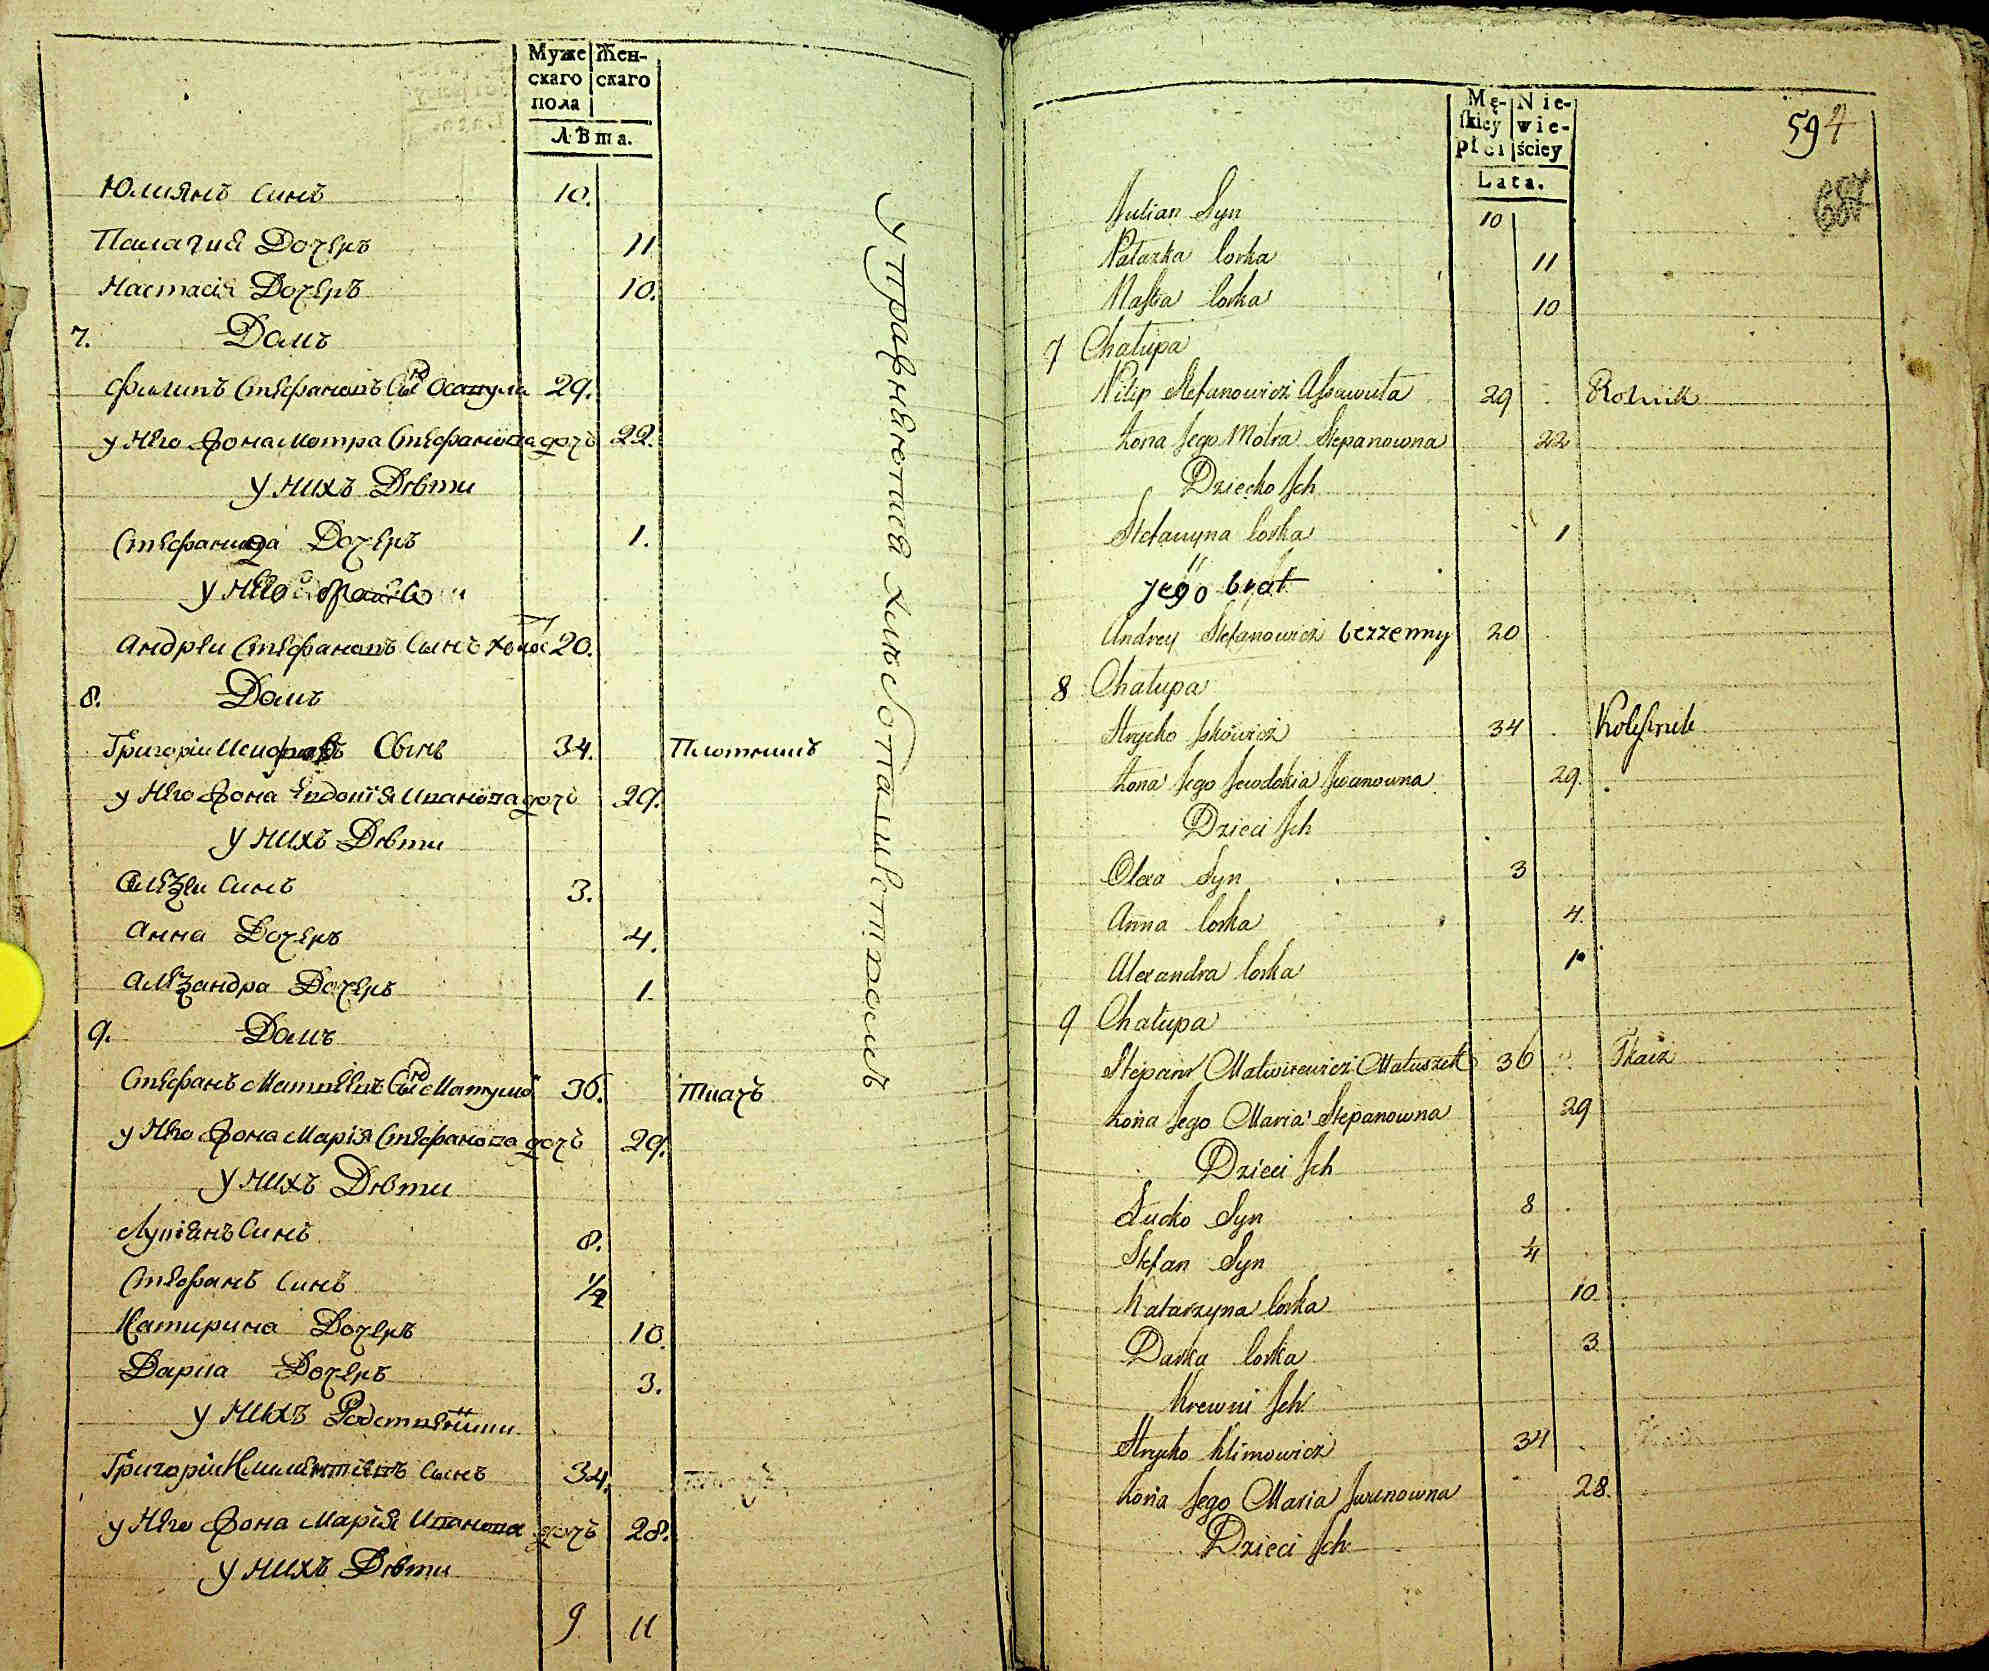 Муже Жен-
скаго скаго
пола
Лѣта.
Юлиянъ синъ 10.
Палагия Дочеръ 11
Настасія Дочеръ 10.
7. Домъ
Филипъ Стефановъ Сынъ Осавула 29.
у Него Жона Мотра Стефанова дочь 22.
у нихъ Дѣти
Стефанида Дочеръ 1.
у Него
Андреи Стефановъ Сынъ холос 20.
8. Домъ
Григоріи Сынъ 34. Плотникъ
у Него Жона Евдокія Иванова дочь 29.
у нихъ Дѣти
Алеѯеи синъ 3.
Анна Дочеръ 4.
Алеѯандра Дочеръ 1.
9. Домъ
Стефанъ Матвѣевъ Сынъ Матушо 36. Ткачъ
у Него Жона Марія Стефанова дочь 29.
у нихъ Дѣти
Лукіянъ Синъ 8.
Стефанъ синъ 1/4
Катирина Дочеръ 10.
Дариа Дочеръ 3.
у нихъ Родственики
Григоріи Климентіевъ сынъ 34.
у Него Жона Марія Иванова дочь 28.
у нихъ Дѣти
9 11
упражняются хлебопашествомъ
Mę- Nie-
ſkiey wie-
płci ściey
Lata.
594
687
Julian Syn 10
Pałazka Corka 11
Nastia Corka 10
7 Chałupa
Pilip Stefanowicz Assawuła 29 Rolnik
Żona Jego Motra Stepanowna 22
Dziecko Jch
Stefanyna Corka 1
jego brat
Andrey Stefanowicz bezzenny 20
8 Chałupa
Hrycko Jskowicz 34 Kołeśnik
Żona Jego Jewdokia Jwanowna 29.
Dzieci Jch
Olexa Syn 3
Anna Corka 4.
Alexandra Corka 1
9 Chałupa
Stepan Matwiiewicz Matuszek 36 Tkacz
Żona Jego Maria Stepanowna 29
Dzieci Jch
Łucko Syn 8
Stefan Syn 1/4
Katarzyna Corka 10
Darka Corka 3
Krewni Jch
Hrycko Klimowicz 34
Żona Jego Maria Jwanowna 28.
Dzieci Jch